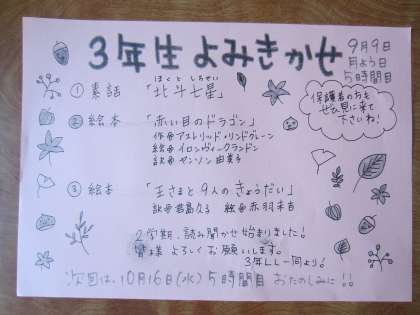 3年生よみきかせ
9月9日
月よう日
5時間目
ほくと しちせい
① 素話 「北斗七星」
保護者の方も
ぜひ見に来て
下さいね!
② 絵本 「赤い目のドラゴン」
作・アストリッド・リンドグレーン
絵・イロン・ヴィークランド
訳・ヤンソン由実子
③ 絵本 「王さまと9人のきょうだい」
訳・君島久子 絵・赤羽末吉
2学期、読み聞かせ始まりました!
皆様 よろしくお願いします。
3年LL一同より
次回は、10月16日(水)5時間目 おたのしみに!!